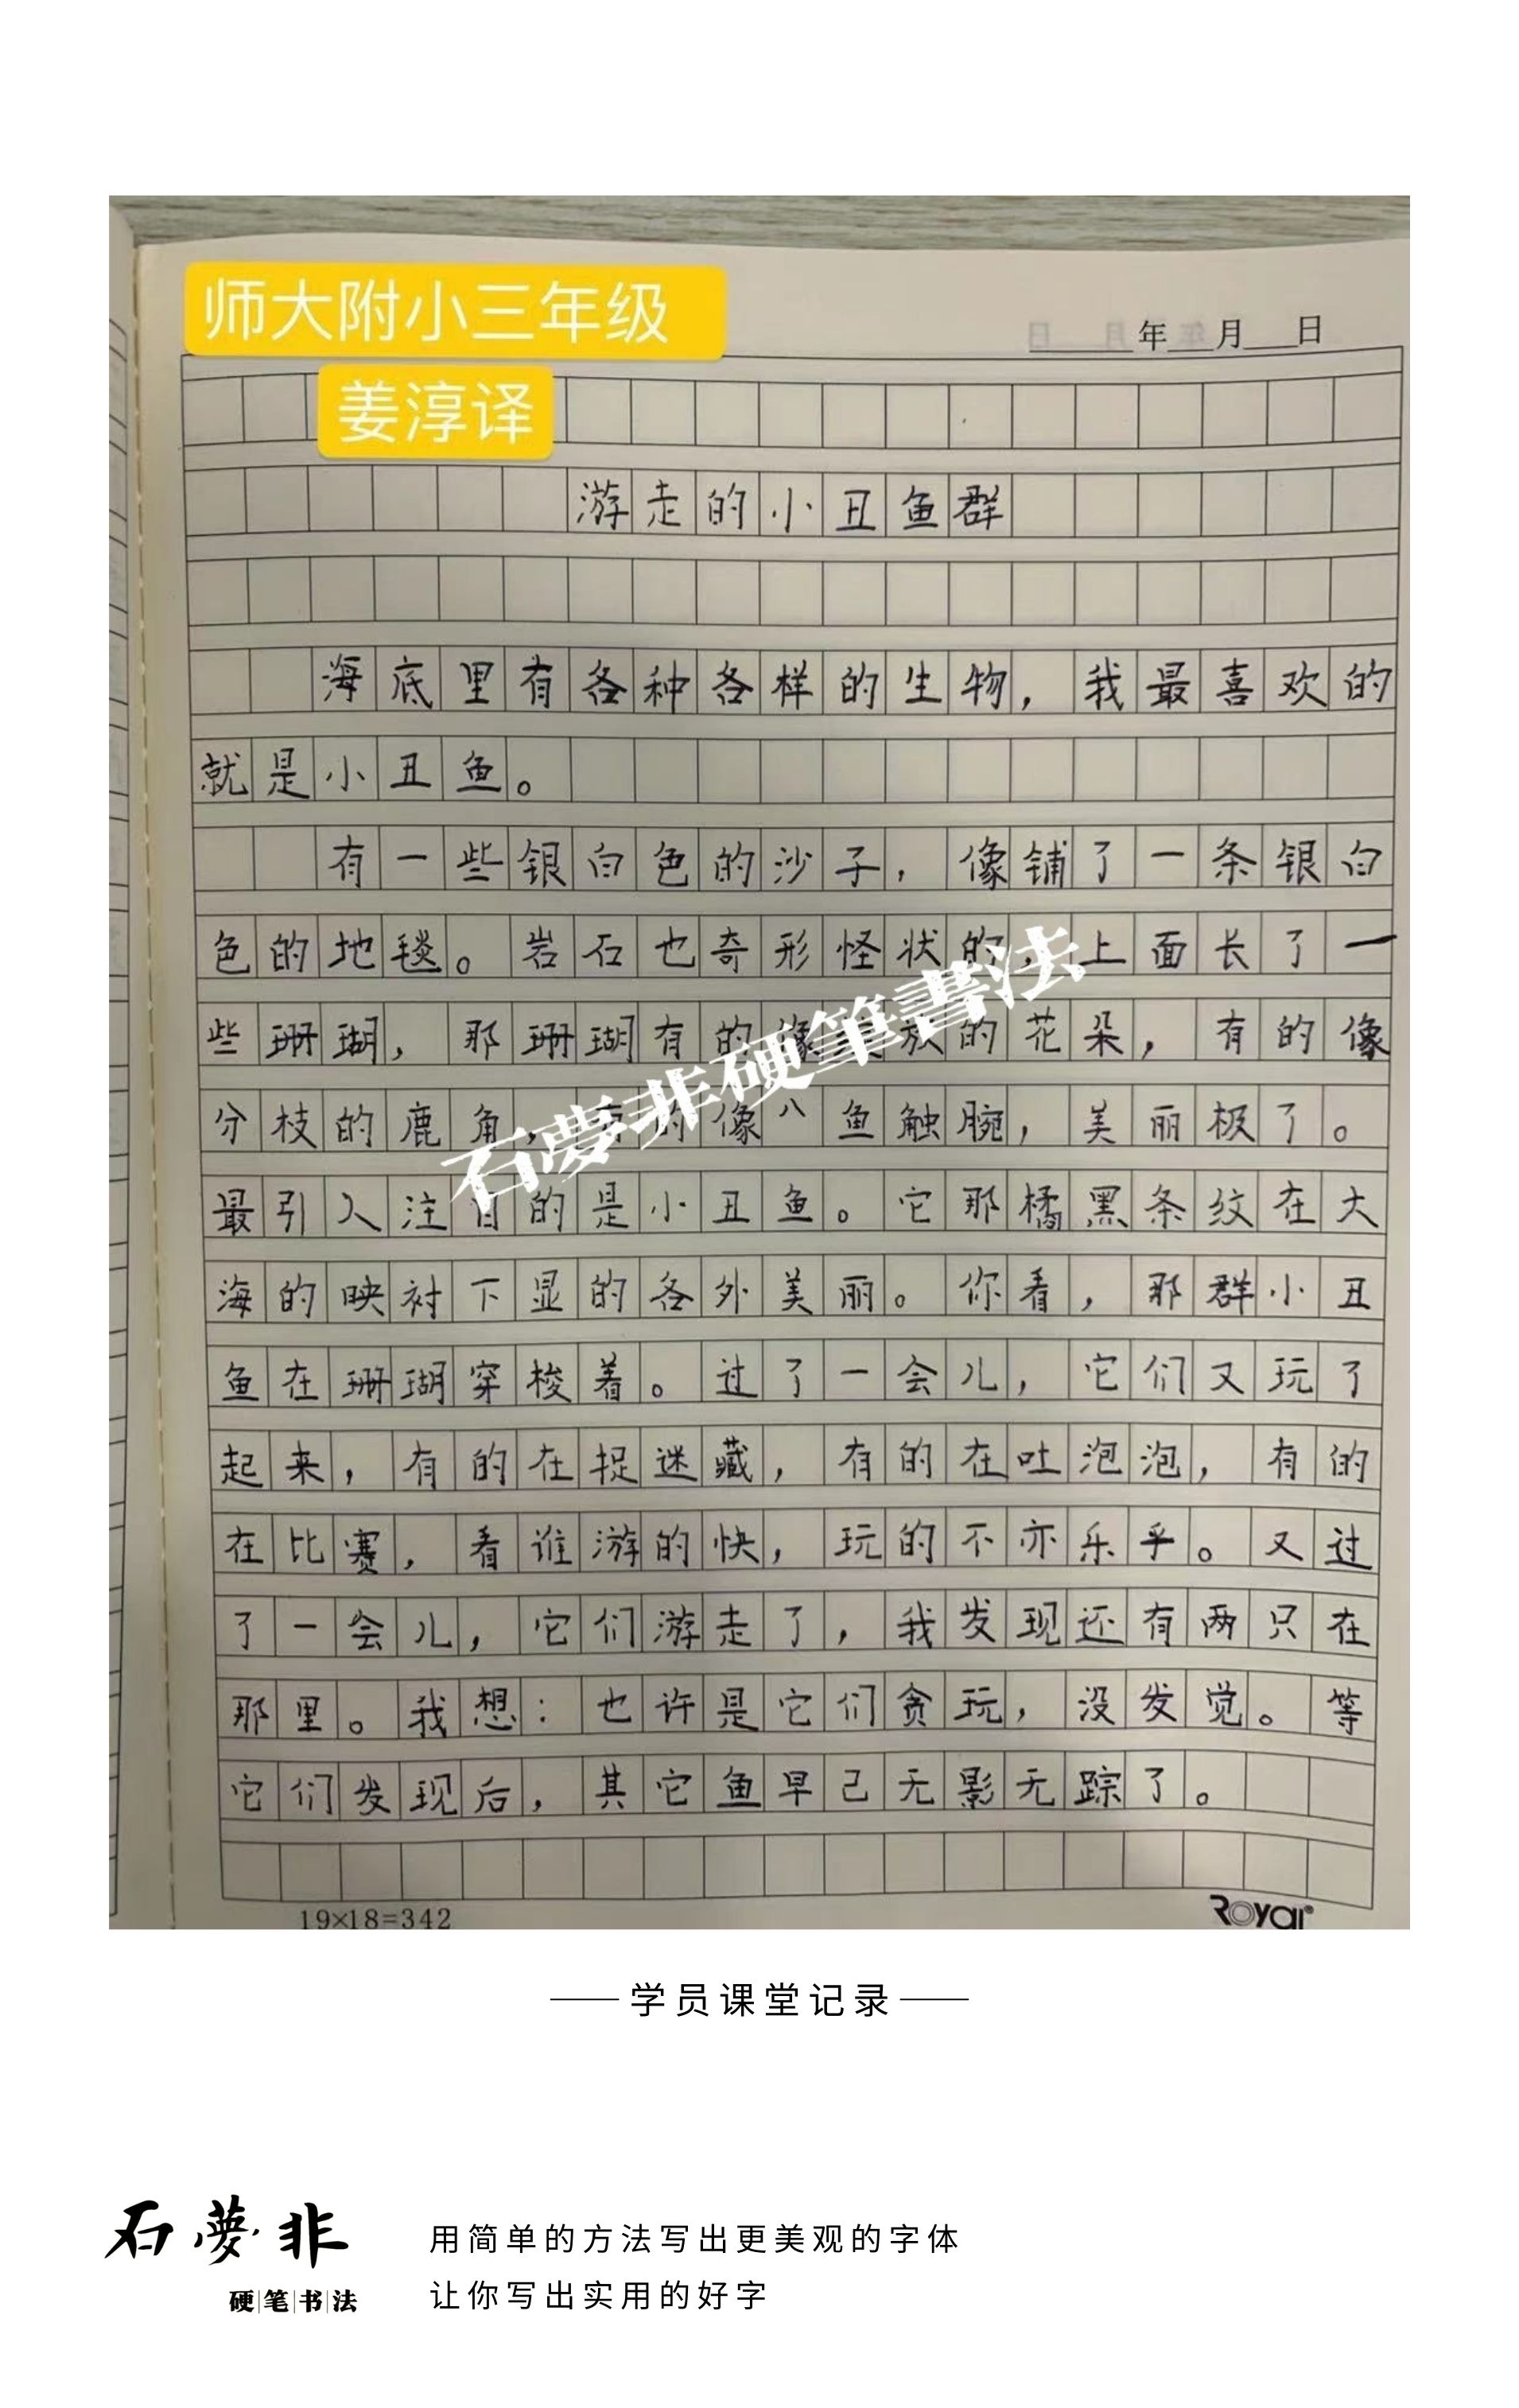 师大附小三年级
年 月 日
姜淳译
游走的小丑鱼群
海底里有各种各样的生物，我最喜欢的
就是小丑鱼。
有一些银白色的沙子，像铺了一条银白
色的地毯。岩石也奇形怪状的，上面长了一
些珊瑚，那珊瑚有的像放的花朵，有的像
分枝的鹿角，有的像八鱼触腕，美丽极了。
最引人注目的是小丑鱼。它那橘黑条纹在大
海的映衬下显的各外美丽。你看，那群小丑
鱼在珊瑚穿梭着。过了一会儿，它们又玩了
起来，有的在捉迷藏，有的在吐泡泡，有的
在比赛，看谁游的快，玩的不亦乐乎。又过
了一会儿，它们游走了，我发现还有两只在
那里。我想：也许是它们贪玩，没发觉。等
它们发现后，其它鱼早已无影无踪了。
石夢非硬筆書法
19×18=342
Royal
学员课堂记录
石夢非
硬笔书法
用简单的方法写出更美观的字体
让你写出实用的好字